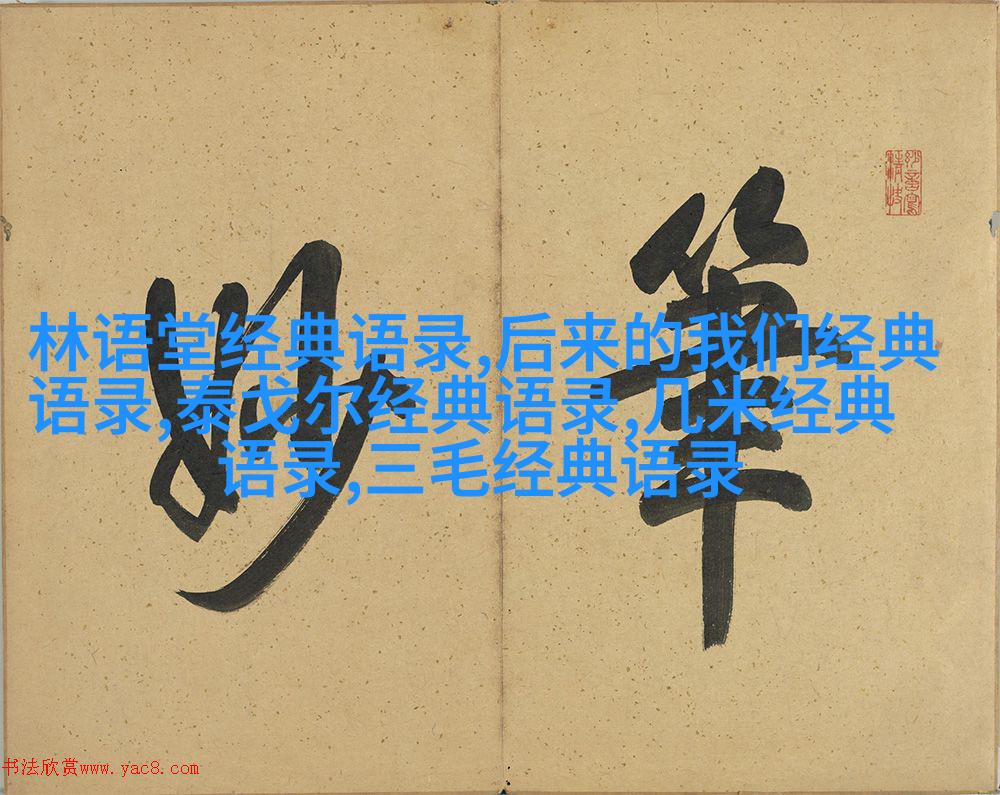 筆
妙
林语堂经典语录,后来的我们经典
语录,泰戈尔经典语录,几米经典
语录,三毛经典语录
书法欣赏www.yac8.com